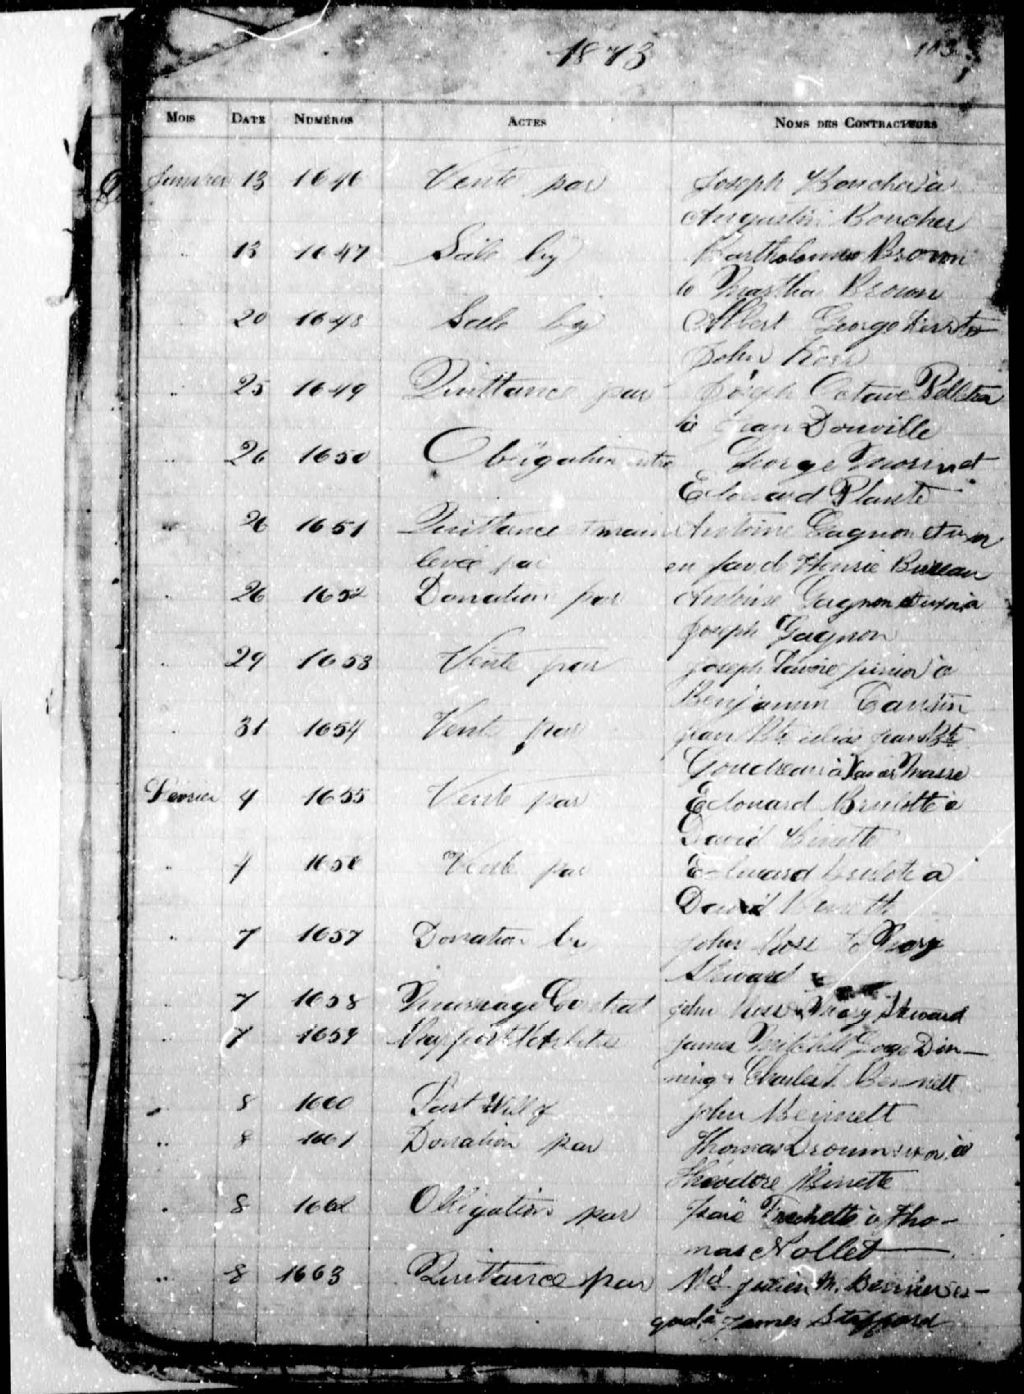 1873
Mois Date Numéros Actes Noms des Contracteurs
Janvier 13 1646 Vente par Joseph Boucher à
Augustin Boucher
13 1647 Sale by Bartholomew Brown
to Martha Brown
20 1648 Sale by Albert George
John Ross
25 1649 Quittance par Joseph Octave Pelletier
à Jean Douville
26 1650 Obligation entre George Morin et
Edouard Plante
26 1651 Quittance et main Antoine Gagnon et uxor
levée par en fav d
26 1652 Donation par Antoine Gagnon et uxor à
Joseph Gagnon
29 1653 Vente par Joseph Savoie junior à
Benjamin
31 1654 Vente par Jean Bte alias Jean Bte
Goudreau à Masse
Février 4 1655 Vente par Edouard Brulotte à
David Binette
4 1656 Vente par Edouard Brulote à
David Binette
7 1657 Donation by John Ross to Mary
Steward
7 1658 Marriage Contrat John Ross & Mary Steward
7 1659 Rapport d'Arbitres James Mitchell Din—
ning & Charles T. Bennett
8 1660 Last Will of John Bennett
8 1661 Donation par Thomas uxor à
Théodore Binette
8 1662 Obligation par Frechette à Tho—
mas Nollet
8 1663 Quittance par Julien M. Bernier es—
qual. à James Stafford